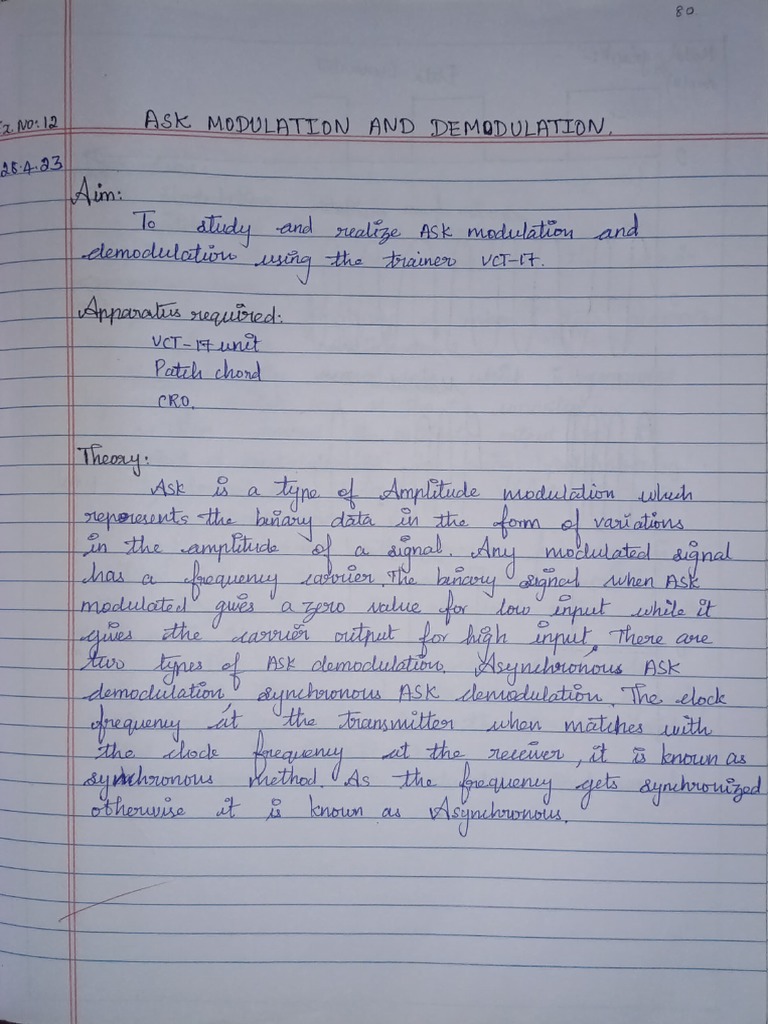 80
Ex. NO: 12
ASK MODULATION AND DEMODULATION.
25.4.23
Aim:
To study and realize ASK modulation and
demodulation using the trainer VCT-17.
Apparatus required:
VCT-17 unit
Patch chord
CRO.
Theory:
ASK is a type of Amplitude modulation which
represents the binary data in the form of variations
in the amplitude of a signal. Any modulated signal
has a frequency carrier. The binary signal when ASK
modulated gives a zero value for low input while it
gives the carrier output for high input. There are
two types of ASK demodulation. Asynchronous ASK
demodulation, synchronous ASK demodulation. The clock
frequency at the transmitter when matches with
the clock frequency at the receiver, it is known as
synchronous method. As the frequency gets synchronized
otherwise it is known as Asynchronous.